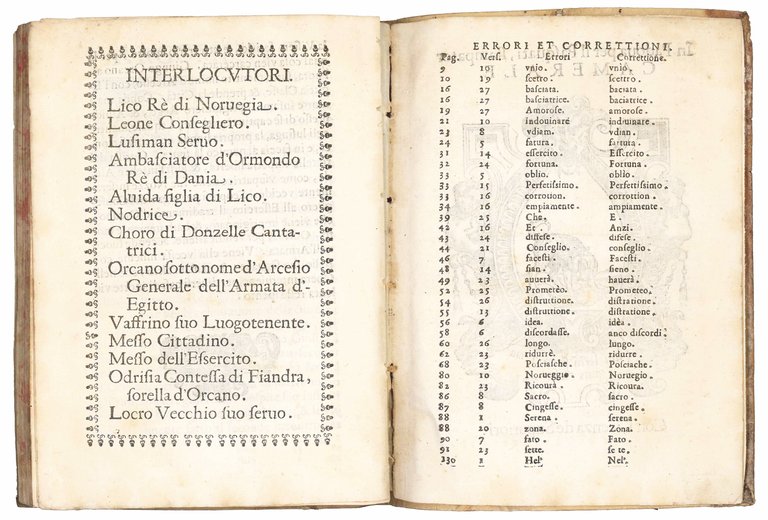 INTERLOCVTORI.
Lico Rè di Noruegia.
Leone Consegliero.
Lusiman Seruo.
Ambasciatore d'Ormondo
Rè di Dania.
Aluida figlia di Lico.
Nodrice.
Choro di Donzelle Canta-
trici.
Orcano sotto nome d'Arcesio
Generale dell'Armata d'-
Egitto.
Vaffrino suo Luogotenente.
Messo Cittadino.
Messo dell'Essercito.
Odrisia Contessa di Fiandra,
sorella d'Orcano.
Locro Vecchio suo seruo.
ERRORI ET CORRETTIONI.
Pag. Vers. Errori Correttione.
9 10 vnio. vnio.
10 19 scetro. scettro.
16 27 basciata. baciata.
16 27 basciatrice. baciatrice.
19 27 Amorose. amorose.
21 10 indouinare indiuinare.
23 8 vdiam. vdian.
24 5 fatura. fattura.
31 14 essercito. Essercito.
32 24 fortuna. Fortuna.
33 5 oblio. oblìo.
33 15 Perfettissimo. Perfettissimo.
33 16 corrotion. corrottion.
34 16 empiamente. ampiamente.
39 25 Che. E.
42 16 Et. Anzi.
43 24 diffese. difese.
44 21 Conseglio. conseglio.
46 7 facesti. Facesti.
48 14 sian. sieno.
49 23 auuerà. hauerà.
52 25 Prometèo. Prometeo.
54 26 distruttione. distratione.
55 13 distruttione. distratione.
56 6 idea. idèa.
58 2 discordasse. anco discordi.
60 26 longo. lungo.
62 23 ridurrè. ridurre.
68 23 Posciasche. Posciache.
80 10 Norueggio. Noruegio.
82 23 Ricourà. Ricoura.
86 8 Sacro. sacro.
87 8 Cingesse. cingesse.
88 1 Serena. serena.
88 20 zona. Zona.
90 7 fato. Fato.
91 23 sette. se te.
130 1 Hel'. Nel'.